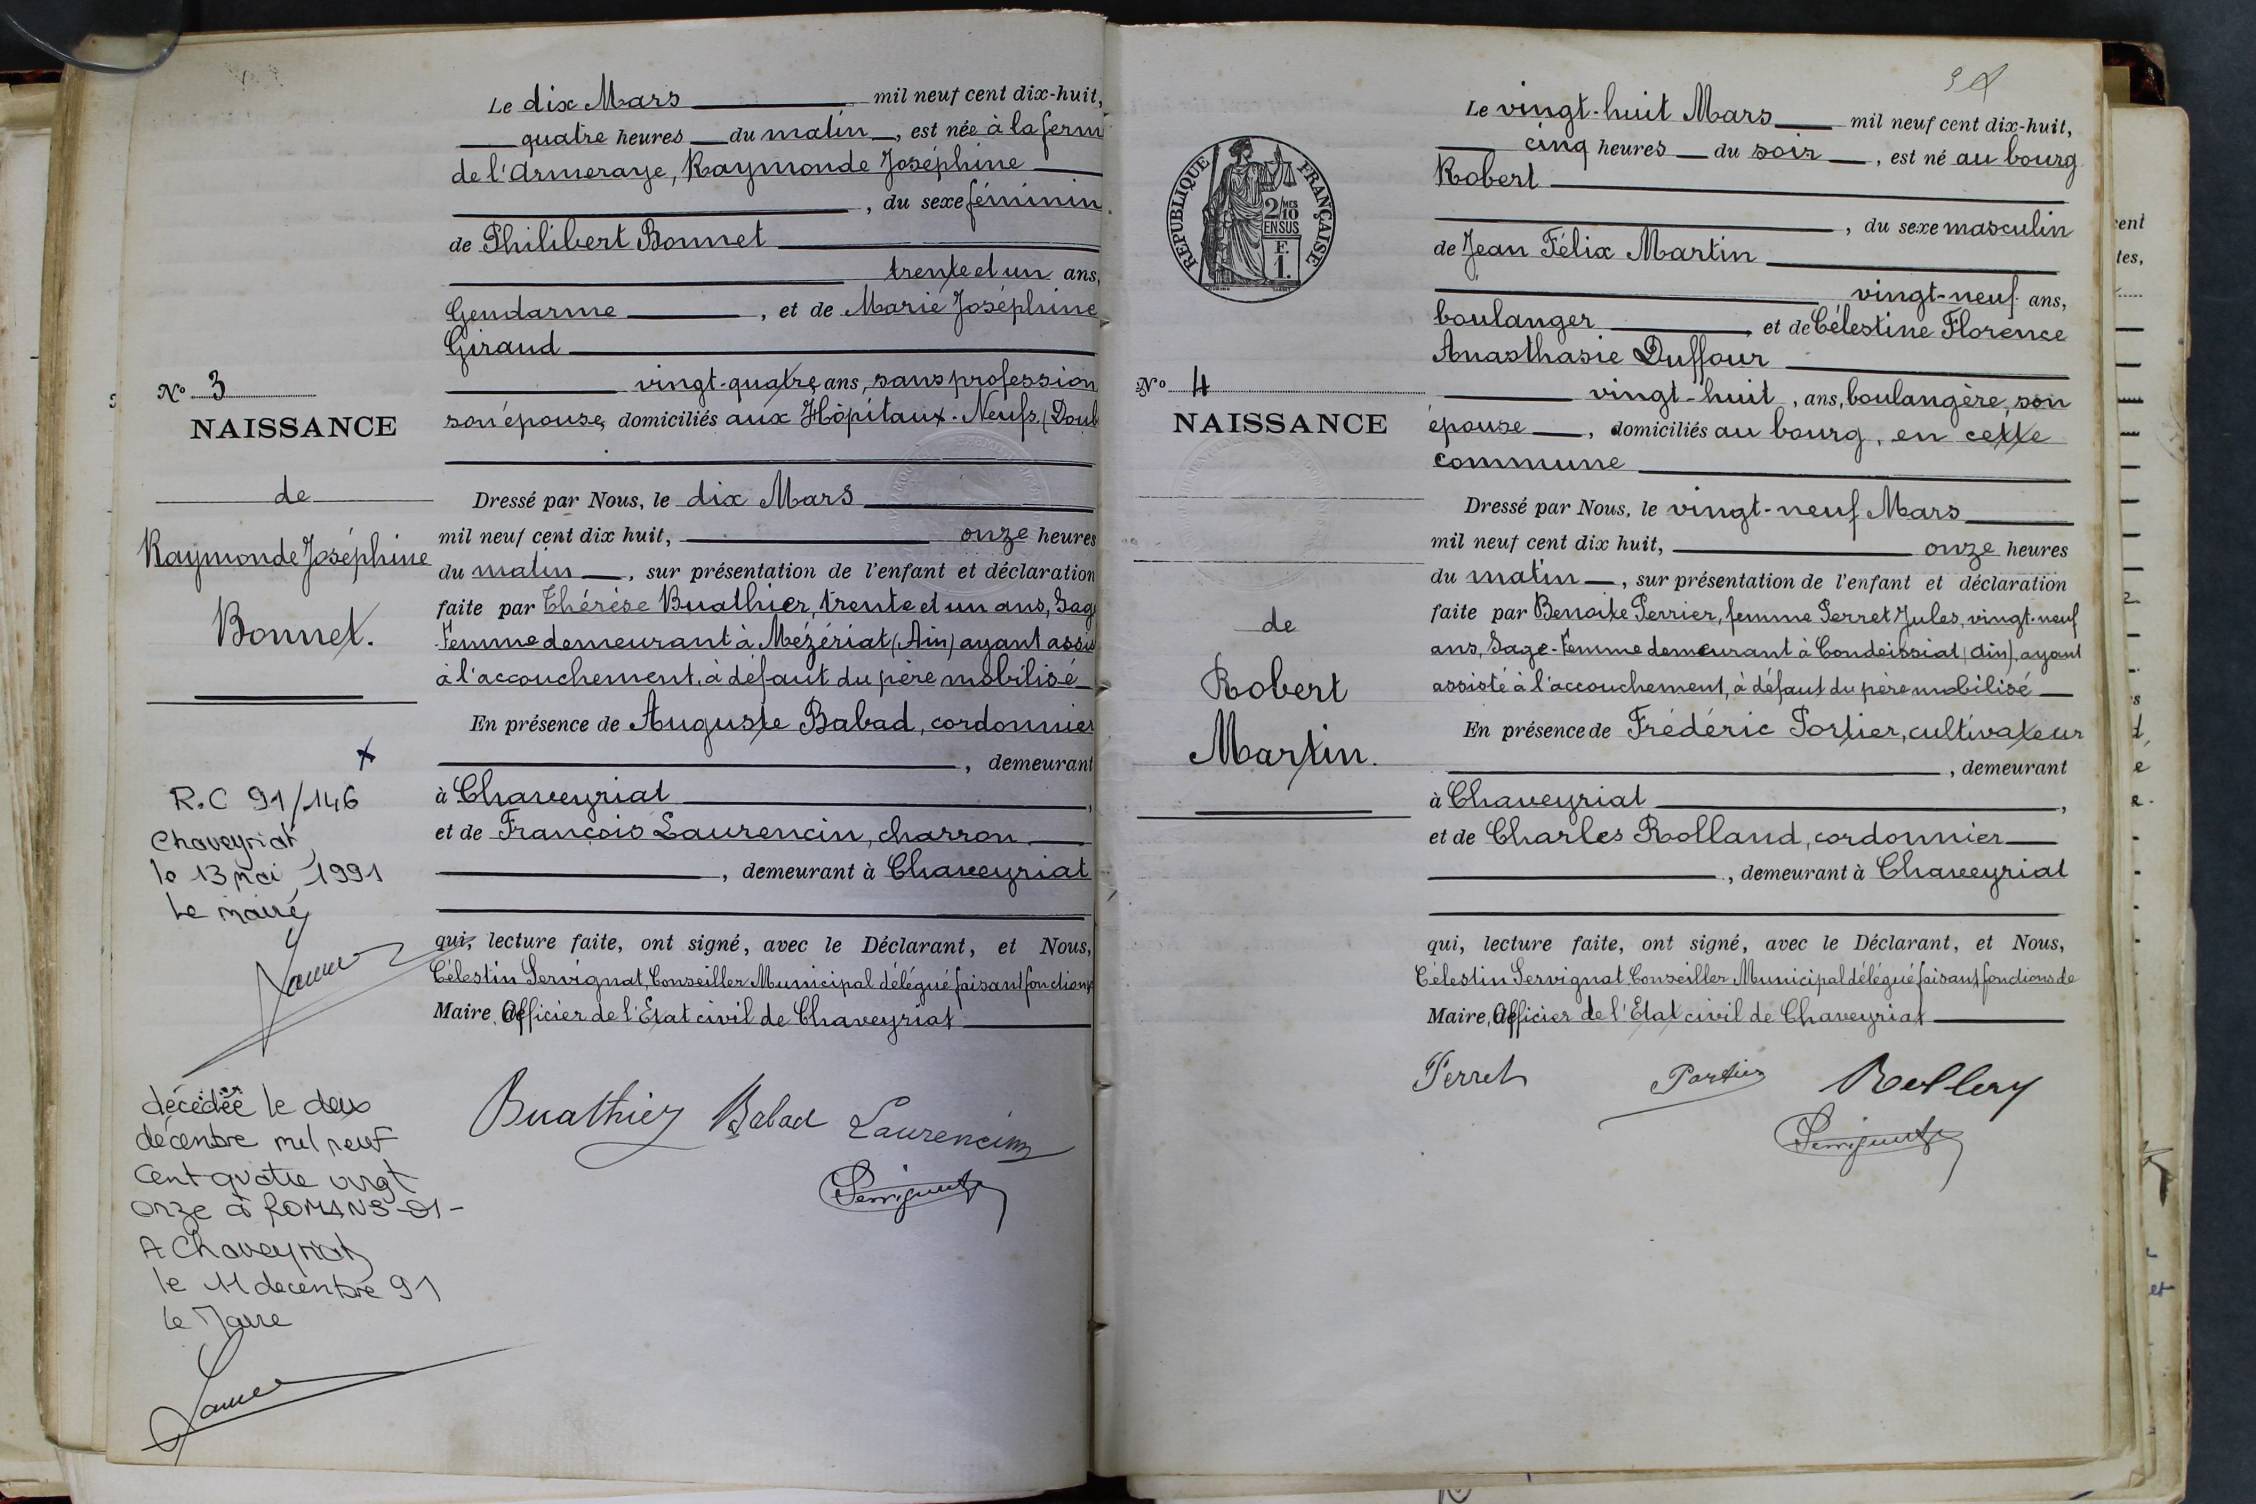 Le dix Mars mil neuf cent dix-huit,
quatre heures du matin, est née à la ferm
de l'Armeraye, Raymonde Joséphine
, du sexe féminin
de Philibert Bonnet
trente et un ans,
Gendarme, et de Marie Joséphine
Giraud
vingt-quatre ans, sans profession
son épouse, domiciliés aux Hôpitaux-Neufs, (Doub
Dressé par Nous, le dix Mars
mil neuf cent dix huit, onze heures
du matin, sur présentation de l'enfant et déclaration
faite par Thérèse Buathier, trente et un ans, Sag
-Femme demeurant à Mézériat (Ain) ayant assis
à l'accouchement, à défaut du père mobilisé
En présence de Auguste Babad, cordonnier
, demeurant
à Chaveyriat,
et de François Laurencin, charron
, demeurant à Chaveyriat
qui, lecture faite, ont signé, avec le Déclarant, et Nous,
Célestin Servignat, Conseiller Municipal délégué faisant fonctions
Maire, Officier de l'Etat civil de Chaveyriat
Buathier Babad Laurencin
Servignat
N° 3
NAISSANCE
de
Raymonde Joséphine
Bonnet.
R.C 91/146
Chaveyriat
le 13 mai 1991
Le maire
décédée le deux
décembre mil neuf
cent quatre vingt
onze à ROMANS-01-
A Chaveyriat
le 11 decembre 91
Le Maire
RÉPUBLIQUE FRANÇAISE
2/10 MES
EN SUS
F.
1.
N° 4
NAISSANCE
de
Robert
Martin.
Le vingt-huit Mars mil neuf cent dix-huit,
cinq heures du soir, est né au bourg
Robert
, du sexe masculin
de Jean Félix Martin
vingt-neuf ans,
boulanger, et de Célestine Florence
Anasthasie Duffour
vingt-huit, ans, boulangère, son
épouse, domiciliés au bourg, en cette
commune
Dressé par Nous, le vingt-neuf Mars
mil neuf cent dix huit, onze heures
du matin, sur présentation de l'enfant et déclaration
faite par Benoite Perrier, femme Perret Jules, vingt-neuf
ans, Sage-Femme demeurant à Condeissiat (Ain), ayant
assisté à l'accouchement, à défaut du père mobilisé
En présence de Frédéric Portier, cultivateur
, demeurant
à Chaveyriat,
et de Charles Rolland, cordonnier
, demeurant à Chaveyriat
qui, lecture faite, ont signé, avec le Déclarant, et Nous,
Célestin Servignat, Conseiller Municipal délégué faisant fonctions de
Maire, Officier de l'Etat civil de Chaveyriat
Perret Portier
Servignat